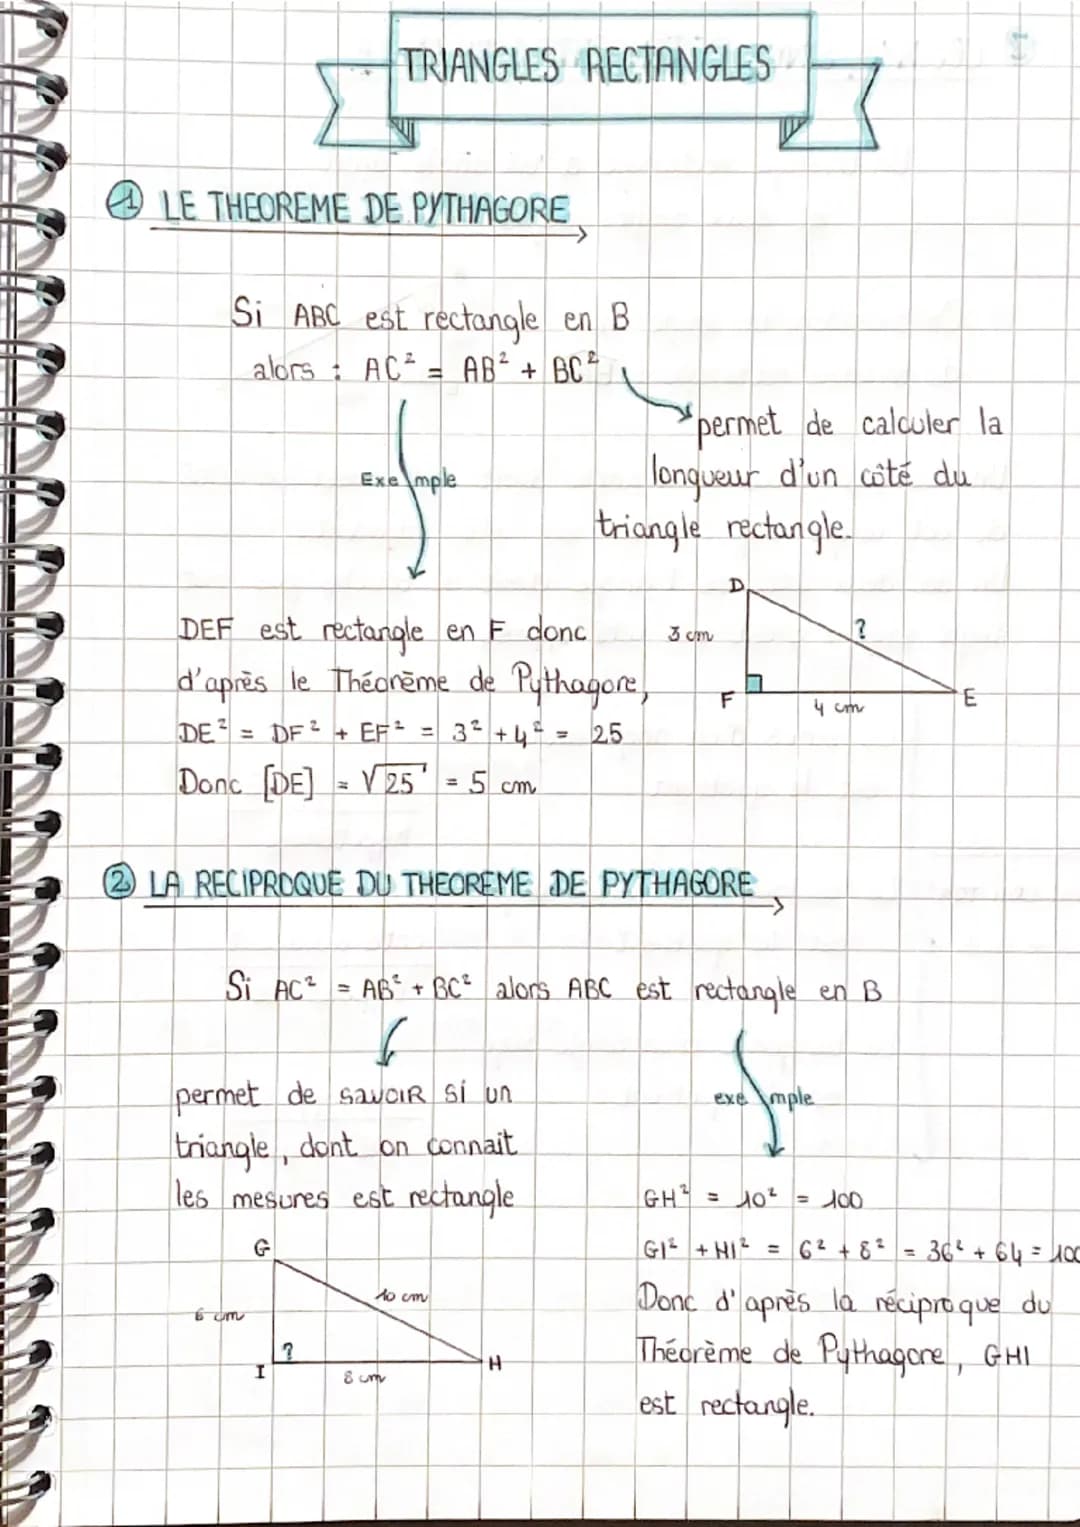 TRIANGLES RECTANGLES
1 LE THEOREME DE PYTHAGORE
Si ABC est rectangle en B
alors : AC² = AB² + BC²
permet de calculer la
longueur d'un côté du
triangle rectangle.
Exemple
DEF est rectangle en F donc
d'après le Théorème de Pythagore,
DE² = DF² + EF² = 3² + 4² = 25
Donc [DE] = √25 = 5 cm
D
3 cm
?
F
4 cm
E
2 LA RECIPROQUE DU THEOREME DE PYTHAGORE
Si AC² = AB² + BC² alors ABC est rectangle en B
permet de savoir si un
triangle, dont on connait
les mesures est rectangle
G
6 cm
10 cm
?
I
8 cm
H
exemple
GH² = 10² = 100
GI² + HI² = 6² + 8² = 36² + 64 = 100
Donc d'après la réciproque du
Théorème de Pythagore, GHI
est rectangle.